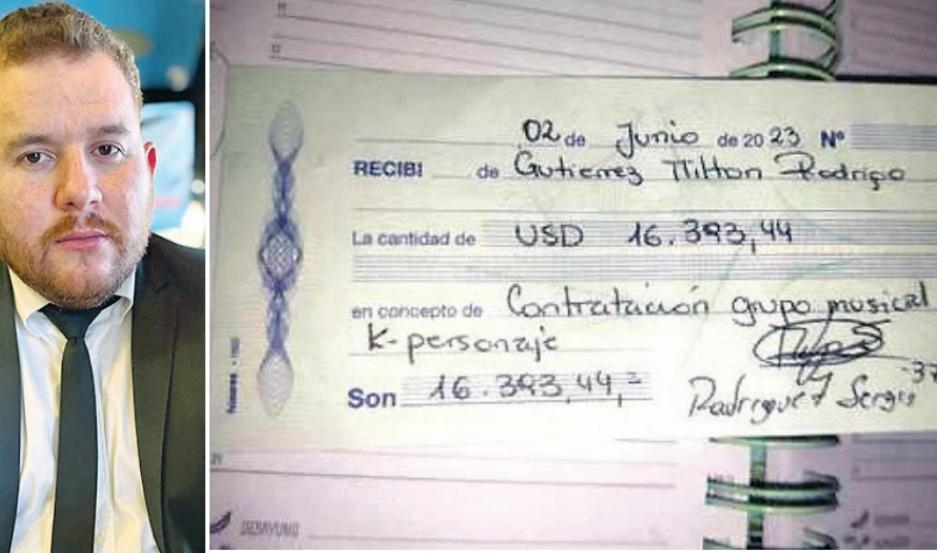 11
12
02 de Junio de 2023 Nº
RECIBI de Gutierrez Milton Rodrigo
La cantidad de USD 16.393,44
en concepto de Contratación grupo musical
K-personaje
Son 16.393,44,=
Rodriguez Sergio
21
DESAYUNO